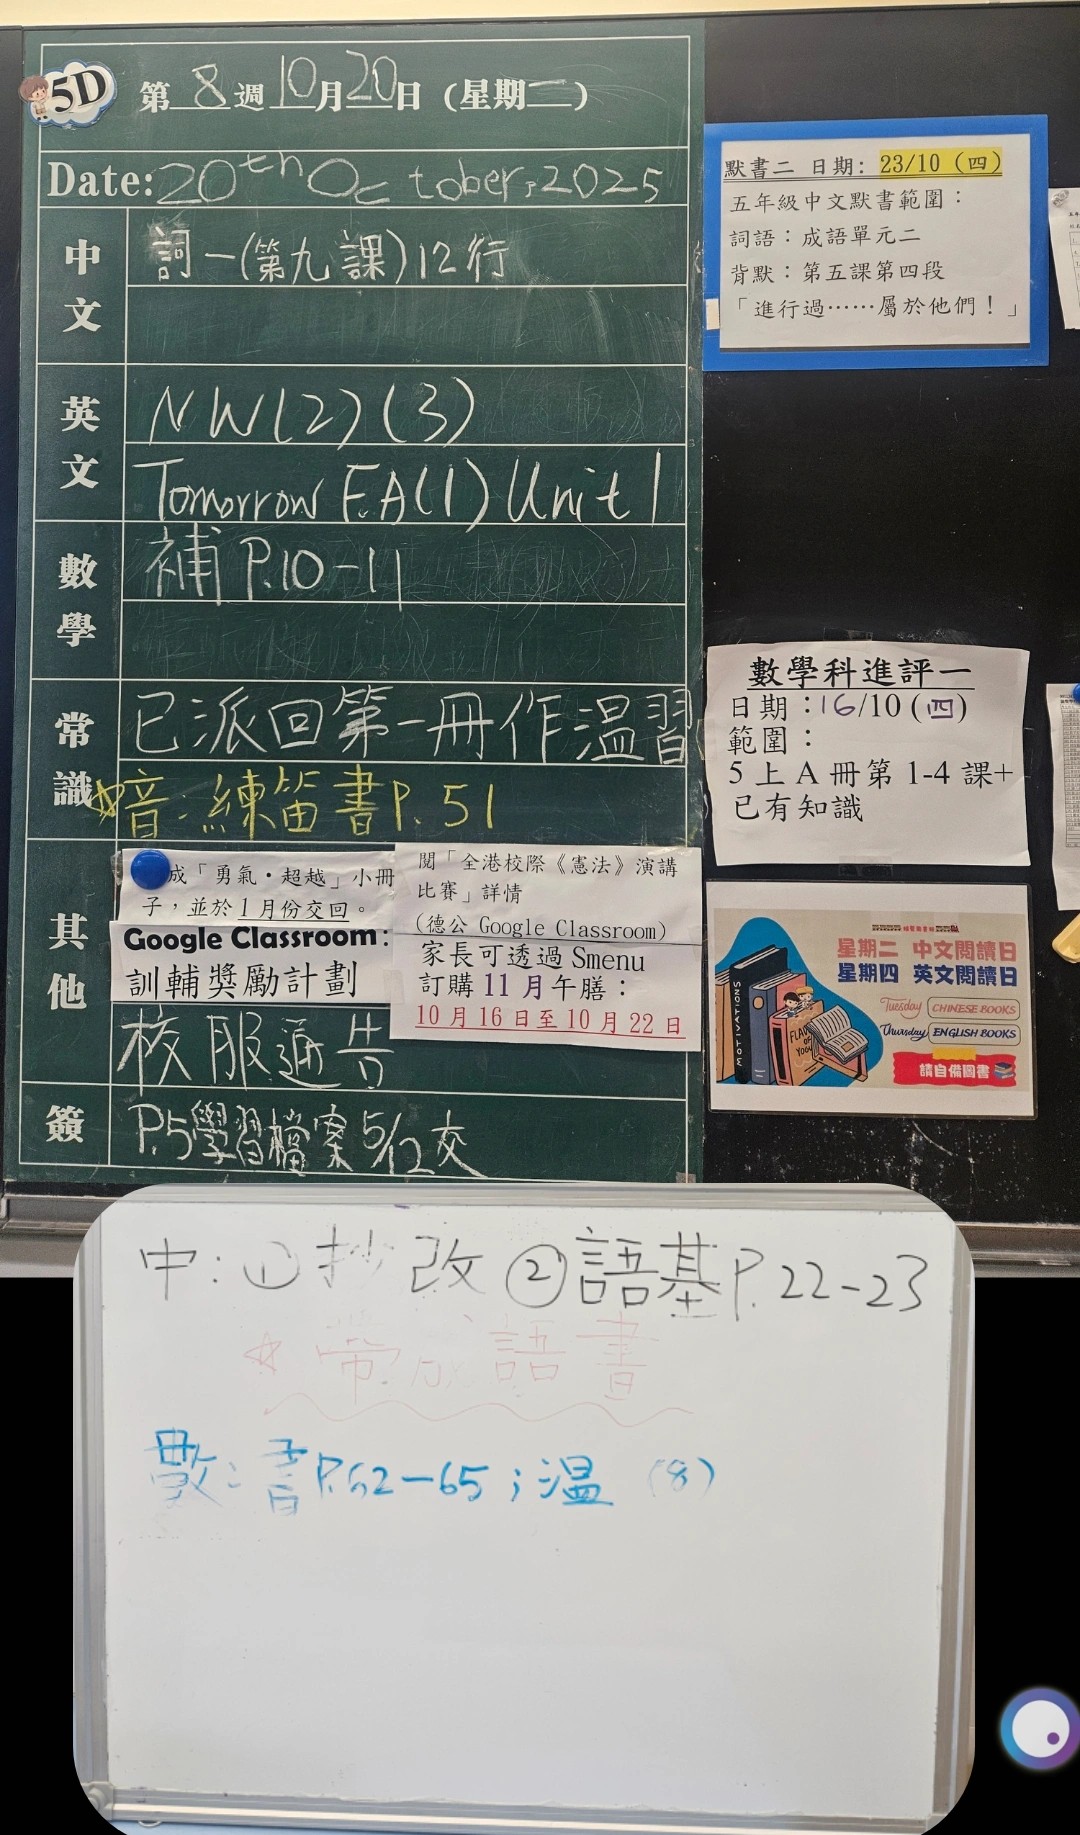 5D
第 8 週 10 月 20 日 (星期二)
Date: 20th October, 2025
中文
詞一(第九課)12行
英文
NW(2)(3)
Tomorrow F.A(1) Unit 1
數學
補 P.10-11
常識
已派回第一冊作溫習
☆音:練笛書P.51
其他
成「勇氣・超越」小冊
子,並於1月份交回。
Google Classroom:
訓輔獎勵計劃
閱「全港校際《憲法》演講
比賽」詳情
(德公 Google Classroom)
家長可透過 Smenu
訂購 11 月午膳:
10 月 16 日至 10 月 22 日
校服通告
簽
P.5學習檔案5/12交
默書二 日期: 23/10 (四)
五年級中文默書範圍:
詞語:成語單元二
背默:第五課第四段
「進行過……屬於他們!」
數學科進評一
日期:16/10 (四)
範圍:
5 上 A 冊第 1-4 課+
已有知識
星期二 中文閱讀日
星期四 英文閱讀日
Tuesday CHINESE BOOKS
Thursday ENGLISH BOOKS
請自備圖書
MOTIVATIONS
中:①抄改 ②語基P.22-23
☆帶成語書
數:書P.62-65;溫 (8)